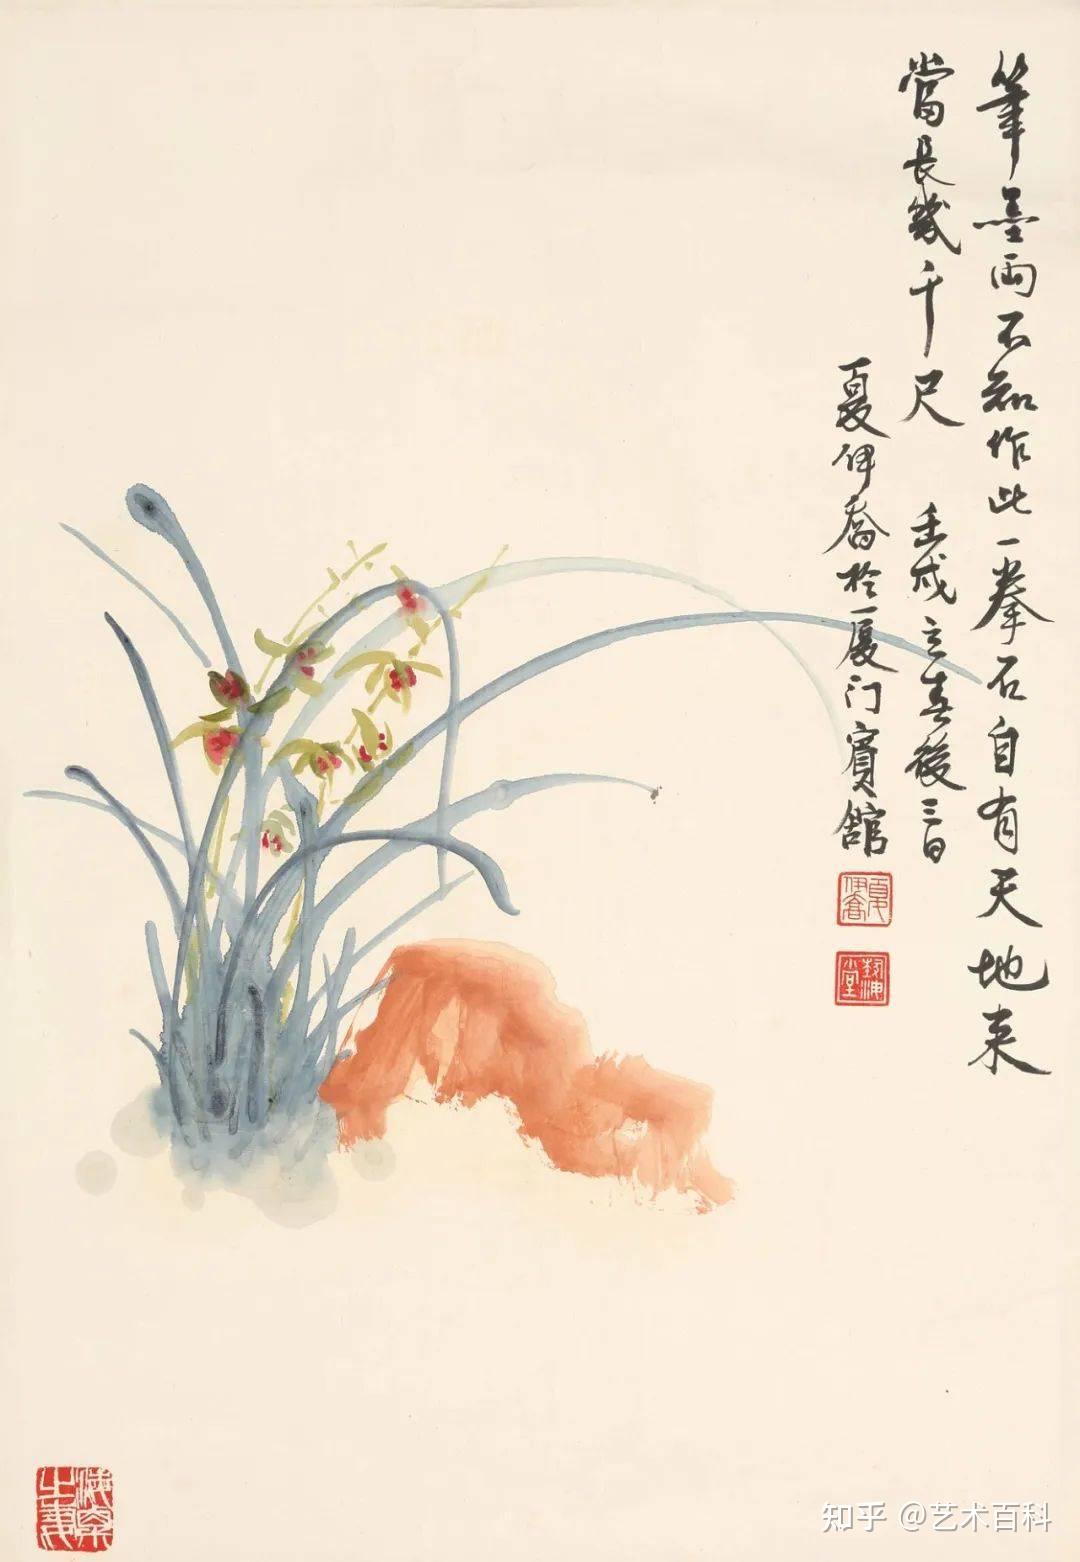 筆墨兩不知作此一拳石自有天地来
當長幾千尺 壬戌立春後三日
夏伊喬於厦门賓舘
夏伊喬
海粟之妻
知乎 @艺术百科